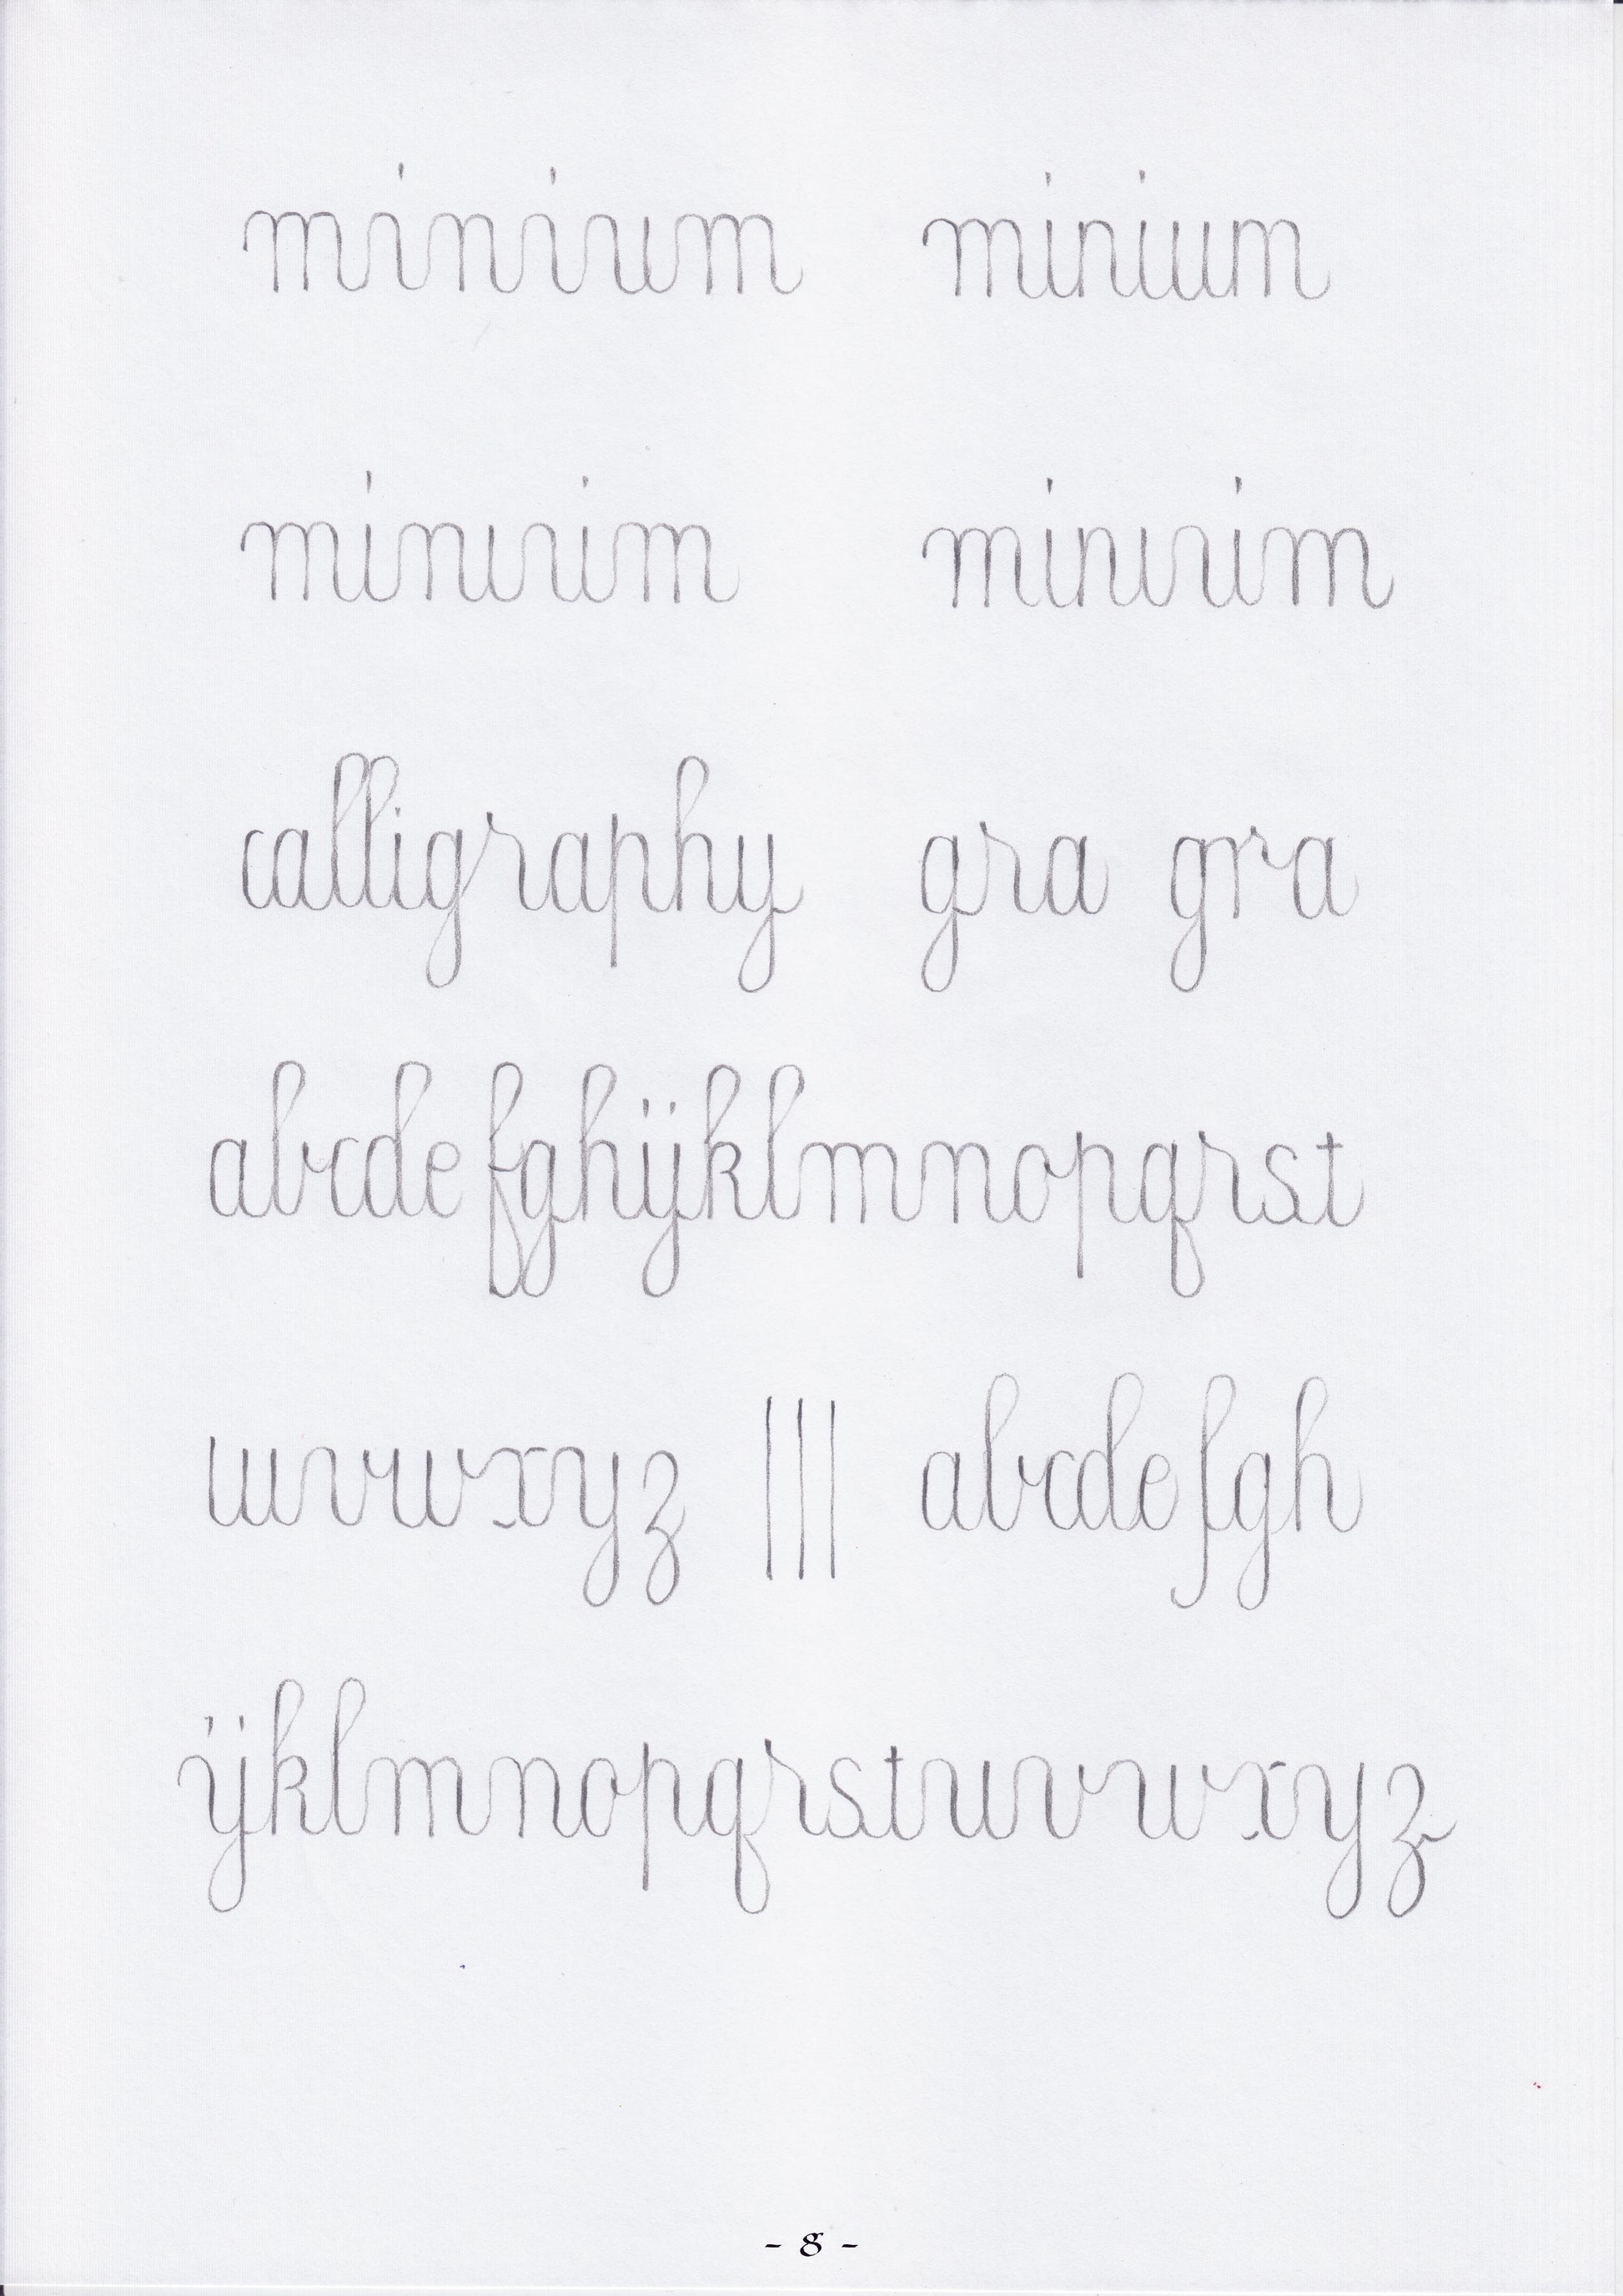 minium minium
calligraphy gra gra
abcdefghijklmnopqrst
uvwxyz ||| abcdefgh
ijklmnopqrstuvwxyz
- 8 -